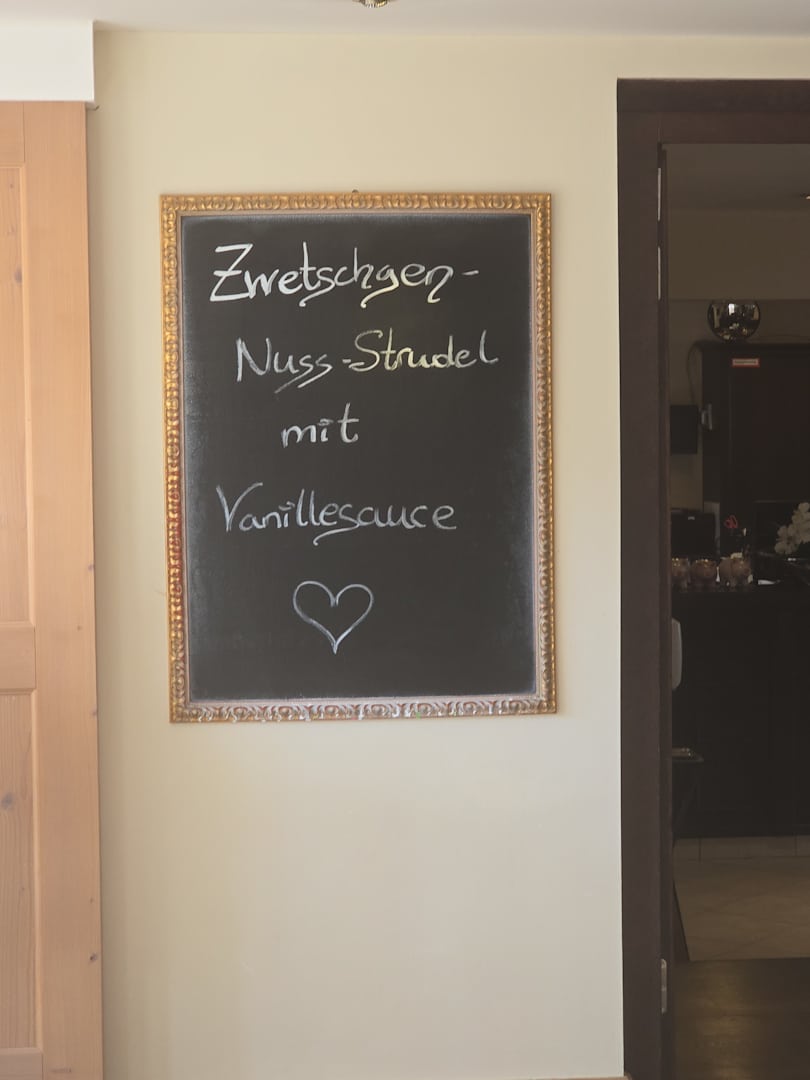 Zwetschgen-
Nuss-Strudel
mit
Vanillesauce